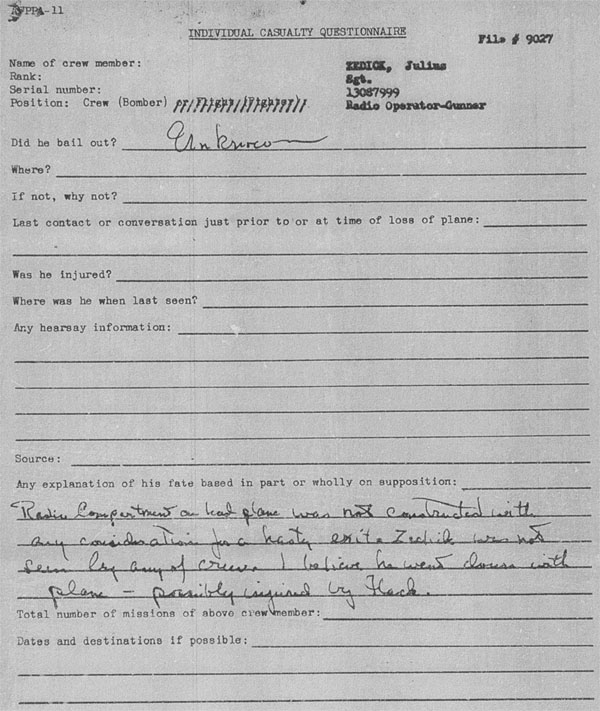 AFPPA-11
INDIVIDUAL CASUALTY QUESTIONNAIRE
File # 9027
Name of crew member: ZEDICK, Julius
Rank: Sgt.
Serial number: 13087999
Position: Crew (Bomber) Radio Operator-Gunner
Did he bail out? Unknown
Where?
If not, why not?
Last contact or conversation just prior to or at time of loss of plane:
Was he injured?
Where was he when last seen?
Any hearsay information:
Source:
Any explanation of his fate based in part or wholly on supposition:
Radio Compartment on lead plane was not constructed with
any consideration for a hasty exit & Zedick was not
seen by any of crew. I believe he went down with
plane — possibly injured by Flack.
Total number of missions of above crew member:
Dates and destinations if possible: